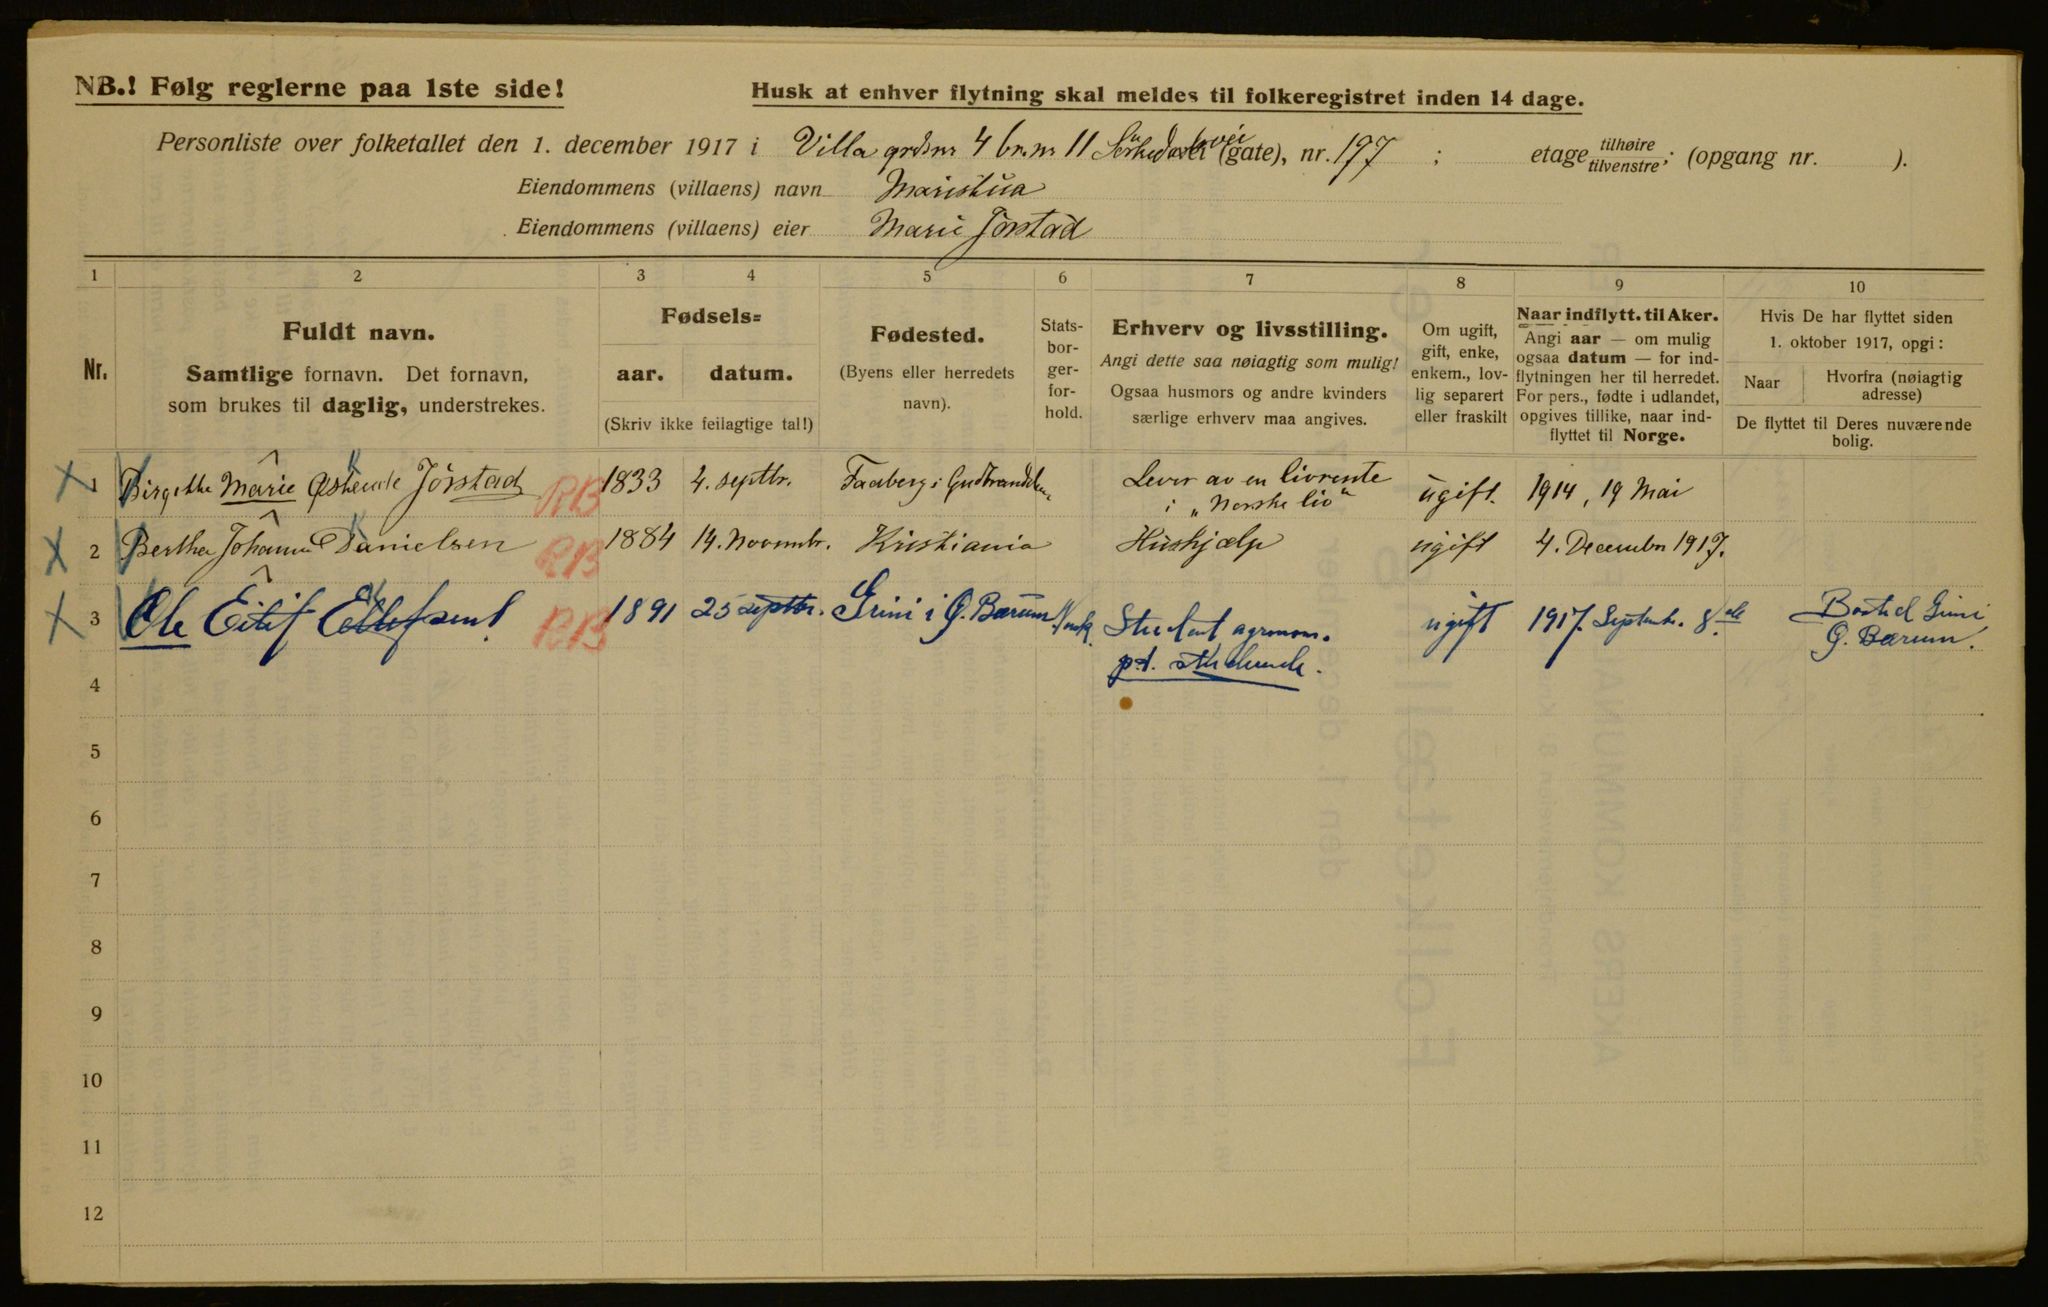 NB.! Følg reglerne paa 1ste side!
Husk at enhver flytning skal meldes til folkeregistret inden 14 dage.
Personliste over folketallet den 1. december 1917 i Villa grdsnr 4 br.nr 11 (gate), nr. 197 ; etage tilhøire tilvenstre; (opgang nr. ).
Eiendommens (villaens) navn Maristua
Eiendommens (villaens) eier Marie Jörstad
1 2 3 4 5 6 7 8 9 10
Nr.
Fuldt navn.
Samtlige fornavn. Det fornavn,
som brukes til daglig, understrekes.
Fødsels=
aar. datum.
(Skriv ikke feilagtige tal!)
Fødested.
(Byens eller herredets
navn).
Stats-
bor-
ger-
for-
hold.
Erhverv og livsstilling.
Angi dette saa nøiagtig som mulig!
Ogsaa husmors og andre kvinders
særlige erhverv maa angives.
Om ugift,
gift, enke,
enkem., lov-
lig separert
eller fraskilt
Naar indflytt. til Aker.
Angi aar — om mulig
ogsaa datum — for ind-
flytningen her til herredet.
For pers., fødte i udlandet,
opgives tillike, naar ind-
flyttet til Norge.
Hvis De har flyttet siden
1. oktober 1917, opgi:
Naar
Hvorfra (nøiagtig
adresse)
De flyttet til Deres nuværende
bolig.
X 1 Birgitte Marie Jörstad RB 1833 4. septbr. Faaberg i Gudbrandsdalen Lever av en livrente ugift. 1914, 19 Mai
i „Norske liv"
X 2 Bertha Johanne Danielsen RB 1884 14. Novembr. Kristiania Hushjælp ugift 4. December 1917.
X 3 Ole Eilif Ellefsen RB 1891 25 septbr. Grini i Ø. Bærum Norsk. Student agronom. ugift 1917. Septembr. 8de Bosted Grini
Ø. Bærum.
p.t. studerende.
4
5
6
7
8
9
10
11
12